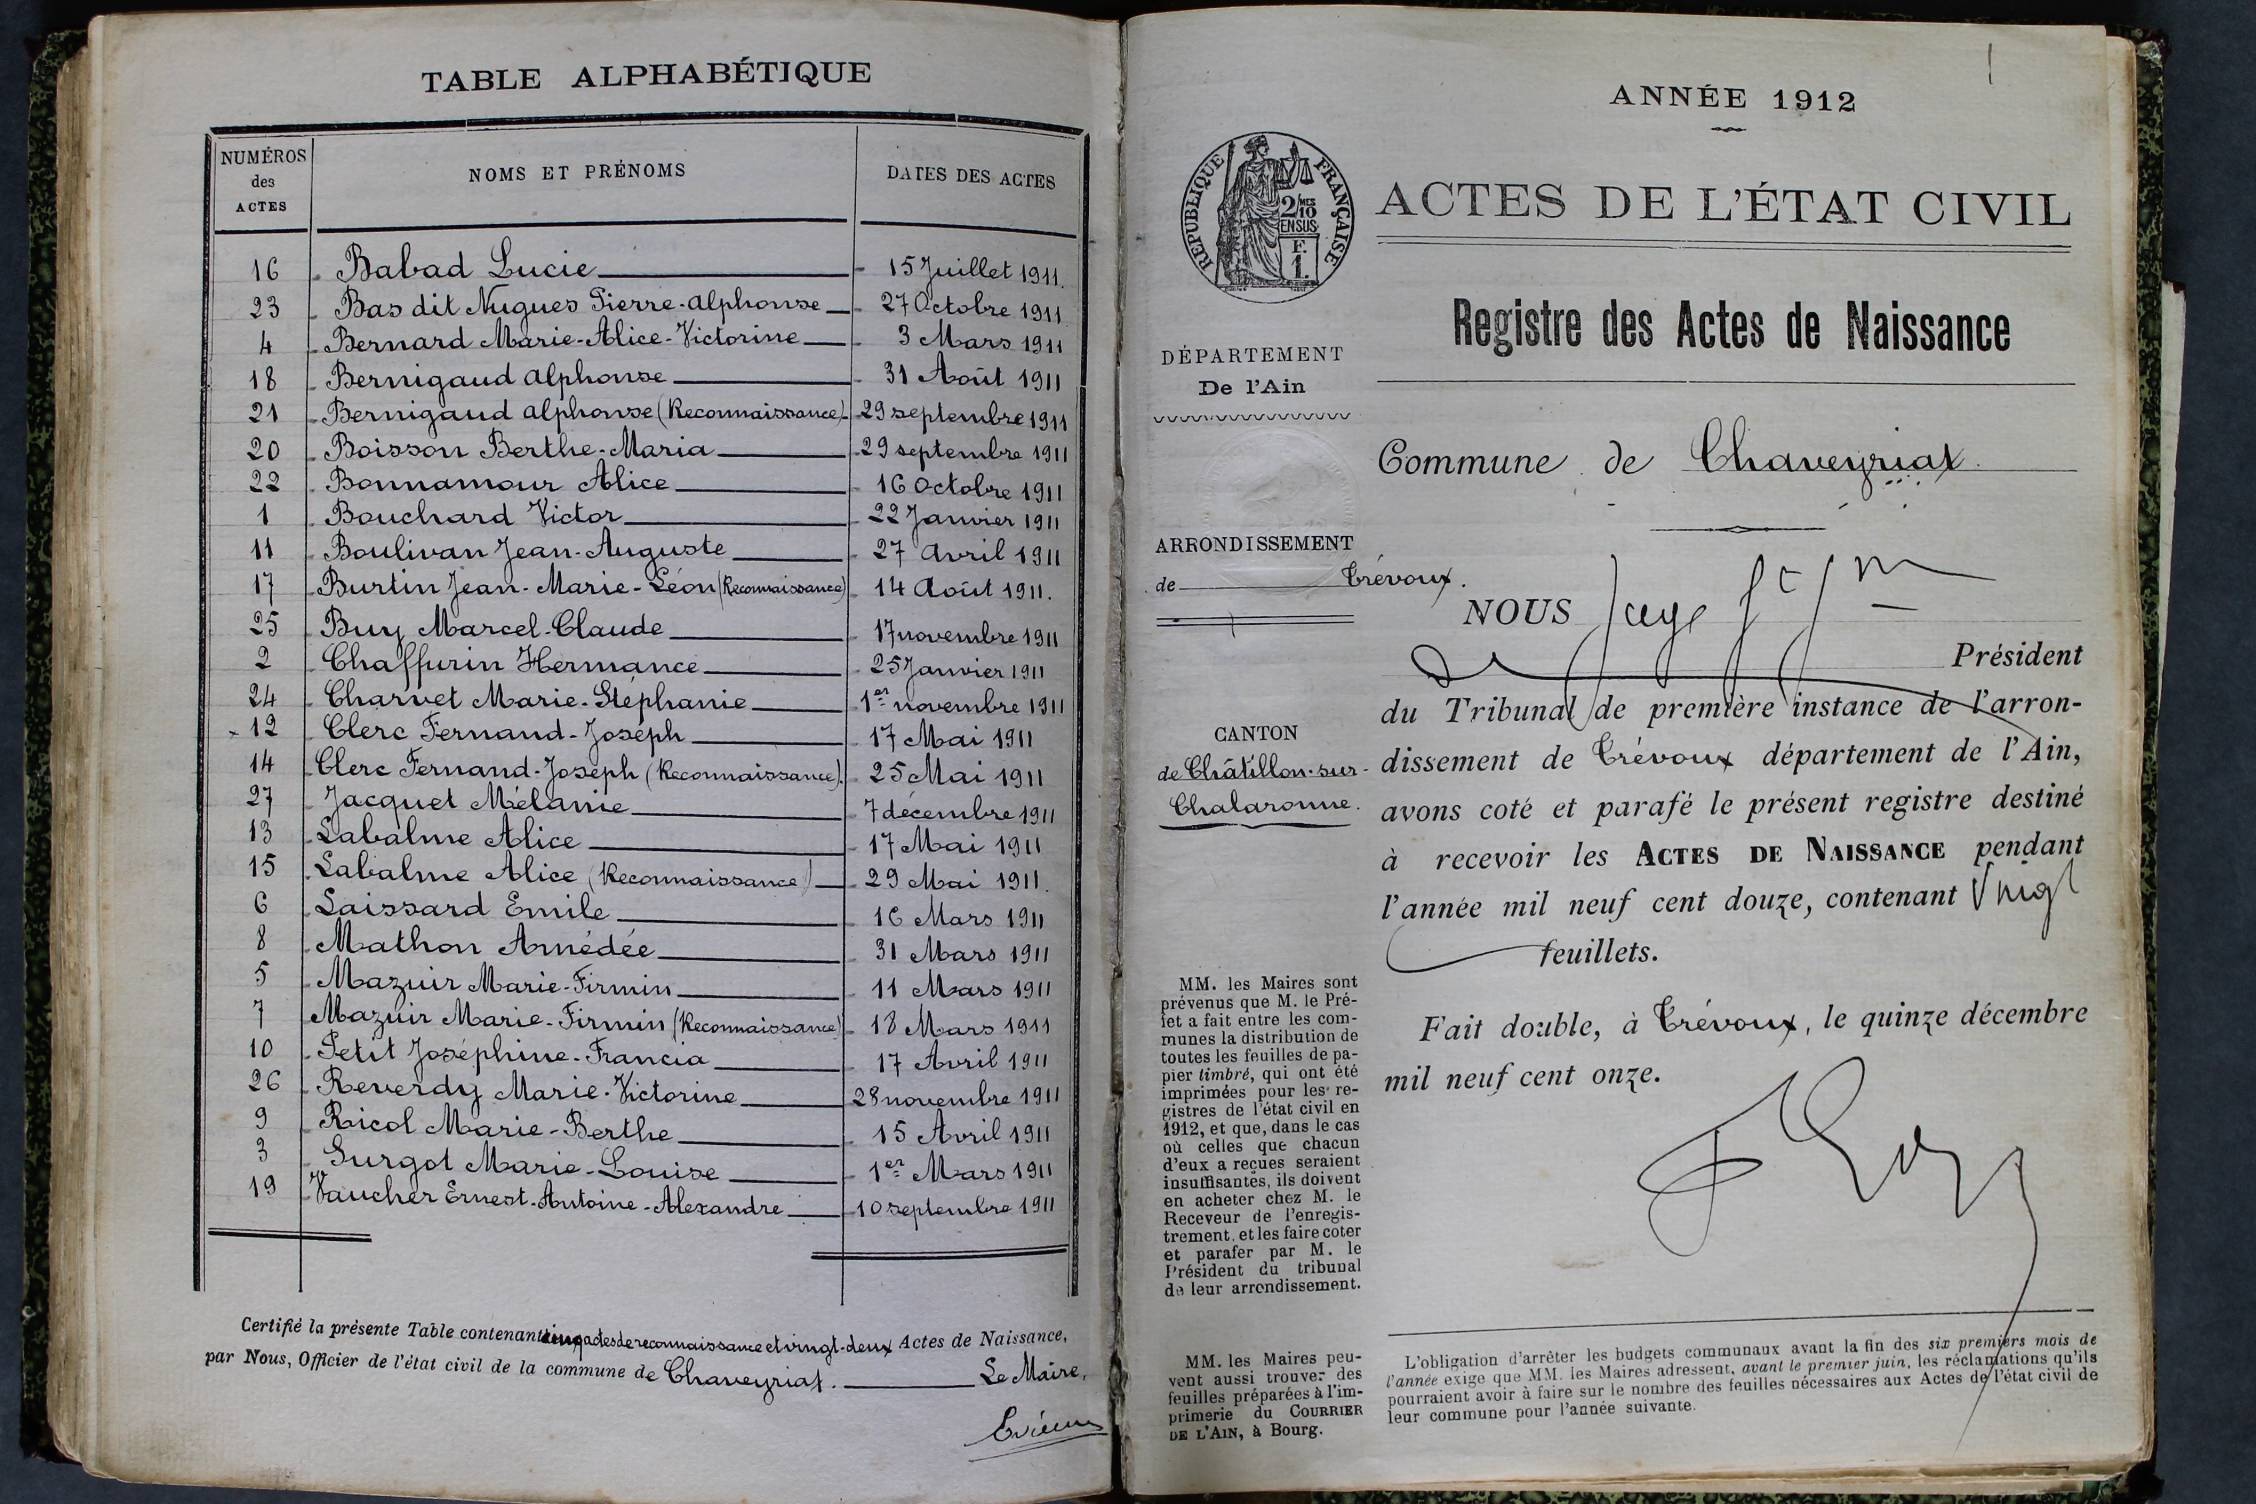 TABLE ALPHABÉTIQUE
NUMÉROS des ACTES NOMS ET PRÉNOMS DATES DES ACTES
16 Babad Lucie 15 Juillet 1911.
23 Bas dit Nugues Pierre-Alphonse 27 Octobre 1911
4 Bernard Marie-Alice-Victorine 3 Mars 1911
18 Bernigaud Alphonse 31 Août 1911
21 Bernigaud Alphonse (Reconnaissance) 29 septembre 1911
20 Boisson Berthe-Maria 29 septembre 1911
22 Bonnamour Alice 16 Octobre 1911
1 Bouchard Victor 22 Janvier 1911
11 Boulivan Jean-Auguste 27 Avril 1911
17 Burtin Jean-Marie-Léon (Reconnaissance) 14 Août 1911.
25 Buy Marcel-Claude 17 novembre 1911
2 Chaffurin Hermance 25 Janvier 1911
24 Charvet Marie-Stéphanie 1er novembre 1911
12 Clerc Fernand-Joseph 17 Mai 1911
14 Clerc Fernand-Joseph (Reconnaissance). 25 Mai 1911
27 Jacquet Mélanie 7 décembre 1911
13 Labalme Alice 17 Mai 1911
15 Labalme Alice (Reconnaissance) 29 Mai 1911.
6 Laissard Emile 16 Mars 1911
8 Mathon Amédée 31 Mars 1911
5 Mazuir Marie-Firmin 11 Mars 1911
7 Mazuir Marie-Firmin (Reconnaissance) 18 Mars 1911
10 Petit Joséphine-Francia 17 Avril 1911
26 Reverdy Marie-Victorine 28 novembre 1911
9 Ricol Marie-Berthe 15 Avril 1911
3 Surgot Marie-Louise 1er Mars 1911
19 Vaucher Ernest-Antoine-Alexandre 10 septembre 1911
Certifié la présente Table contenant cinq actes de reconnaissance et vingt-deux Actes de Naissance,
par Nous, Officier de l'état civil de la commune de Chaveyriat. Le Maire,
1
ANNÉE 1912
RÉPUBLIQUE FRANÇAISE
2/10 MES
EN SUS
F.
1.
ACTES DE L'ÉTAT CIVIL
Registre des Actes de Naissance
DÉPARTEMENT
De l'Ain
Commune de Chaveyriat.
ARRONDISSEMENT
de Trévoux.
NOUS Juge
Président
du Tribunal de première instance de l'arron-
dissement de Trévoux département de l'Ain,
avons coté et parafé le présent registre destiné
à recevoir les ACTES DE NAISSANCE pendant
l'année mil neuf cent douze, contenant Vingt
feuillets.
Fait double, à Trévoux, le quinze décembre
mil neuf cent onze.
CANTON
de Châtillon-sur-
Chalaronne.
MM. les Maires sont
prévenus que M. le Pré-
fet a fait entre les com-
munes la distribution de
toutes les feuilles de pa-
pier timbré, qui ont été
imprimées pour les re-
gistres de l'état civil en
1912, et que, dans le cas
où celles que chacun
d'eux a reçues seraient
insuffisantes, ils doivent
en acheter chez M. le
Receveur de l'enregis-
trement, et les faire coter
et parafer par M. le
Président du tribunal
de leur arrondissement.
MM. les Maires peu-
vent aussi trouver des
feuilles préparées à l'im-
primerie du COURRIER
DE L'AIN, à Bourg.
L'obligation d'arrêter les budgets communaux avant la fin des six premiers mois de
l'année exige que MM. les Maires adressent, avant le premier juin, les réclamations qu'ils
pourraient avoir à faire sur le nombre des feuilles nécessaires aux Actes de l'état civil de
leur commune pour l'année suivante.